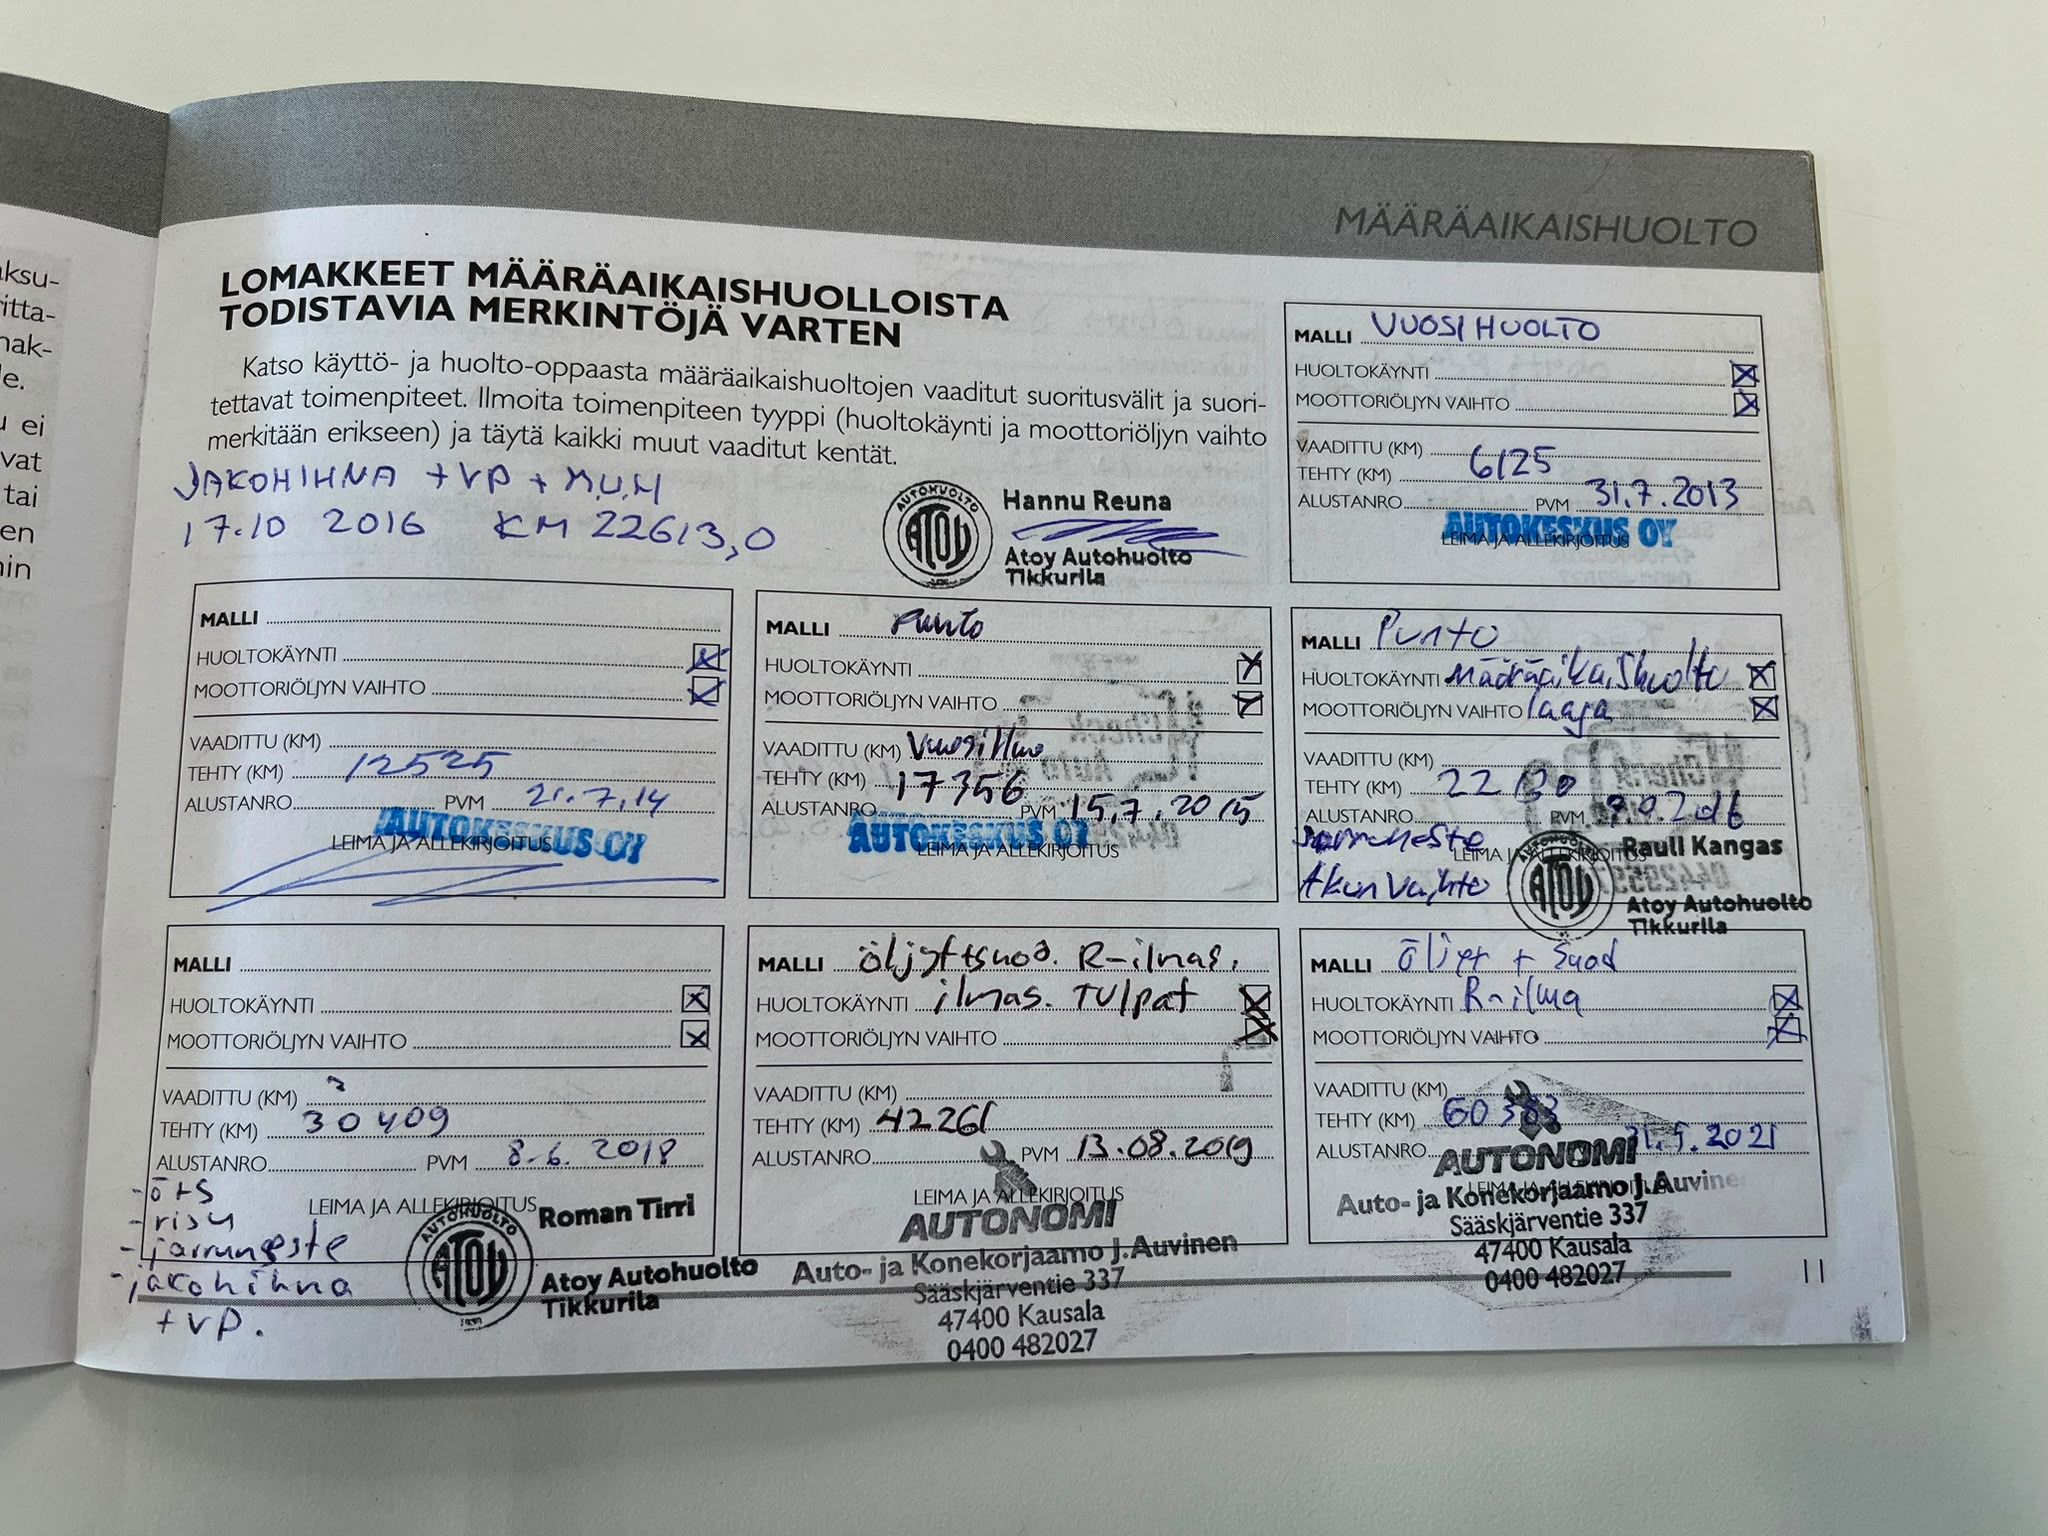 aksu-
ritta-
mak-
le.
u ei
vat
tai
en
nin
MÄÄRÄAIKAISHUOLTO
LOMAKKEET MÄÄRÄAIKAISHUOLLOISTA
TODISTAVIA MERKINTÖJÄ VARTEN
Katso käyttö- ja huolto-oppaasta määräaikaishuoltojen vaaditut suoritusvälit ja suori-
tettavat toimenpiteet. Ilmoita toimenpiteen tyyppi (huoltokäynti ja moottoriöljyn vaihto
merkitään erikseen) ja täytä kaikki muut vaaditut kentät.
JAKOHIHNA + VP + M.U.H
17.10 2016 KM 22613,0
AUTOHUOLTO
ATOY
Hannu Reuna
Atoy Autohuolto
Tikkurila
MALLI VUOSIHUOLTO
HUOLTOKÄYNTI
MOOTTORIÖLJYN VAIHTO
VAADITTU (KM)
TEHTY (KM) 6125
ALUSTANRO PVM 31.7.2013
AUTOKESKUS OY
LEIMA JA ALLEKIRJOITUS
MALLI
HUOLTOKÄYNTI
MOOTTORIÖLJYN VAIHTO
VAADITTU (KM)
TEHTY (KM) 12525
ALUSTANRO PVM 21.7.14
AUTOKESKUS OY
LEIMA JA ALLEKIRJOITUS
MALLI Punto
HUOLTOKÄYNTI
MOOTTORIÖLJYN VAIHTO
VAADITTU (KM)
TEHTY (KM) 17356
ALUSTANRO PVM 15.7.2015
AUTOKESKUS OY
LEIMA JA ALLEKIRJOITUS
MALLI Punto
HUOLTOKÄYNTI Määräaikaishuolto
MOOTTORIÖLJYN VAIHTO laaja
VAADITTU (KM)
TEHTY (KM)
ALUSTANRO PVM
Jarruneste
LEIMA JA ALLEKIRJOITUS
Akun vaihto
AUTOHUOLTO
ATOY
Rauli Kangas
Atoy Autohuolto
Tikkurila
MALLI
HUOLTOKÄYNTI
MOOTTORIÖLJYN VAIHTO
VAADITTU (KM)
TEHTY (KM) 30409
ALUSTANRO PVM 8.6.2018
LEIMA JA ALLEKIRJOITUS
- öts
- risu
- jarruneste
- jakohihna
+ VP.
AUTOHUOLTO
ATOY
Roman Tirri
Atoy Autohuolto
Tikkurila
MALLI öljyt+suod. R-ilmas.
HUOLTOKÄYNTI ilmas. TULPAT
MOOTTORIÖLJYN VAIHTO
VAADITTU (KM)
TEHTY (KM) 42261
ALUSTANRO PVM 13.08.2019
LEIMA JA ALLEKIRJOITUS
AUTONOMI
Auto- ja Konekorjaamo J.Auvinen
Sääskjärventie 337
47400 Kausala
0400 482027
MALLI Öljyt + Suod
HUOLTOKÄYNTI R-ilma
MOOTTORIÖLJYN VAIHTO
VAADITTU (KM)
TEHTY (KM) 60383
ALUSTANRO 31.5.2021
AUTONOMI
Auto- ja Konekorjaamo J.Auvinen
Sääskjärventie 337
47400 Kausala
0400 482027
11